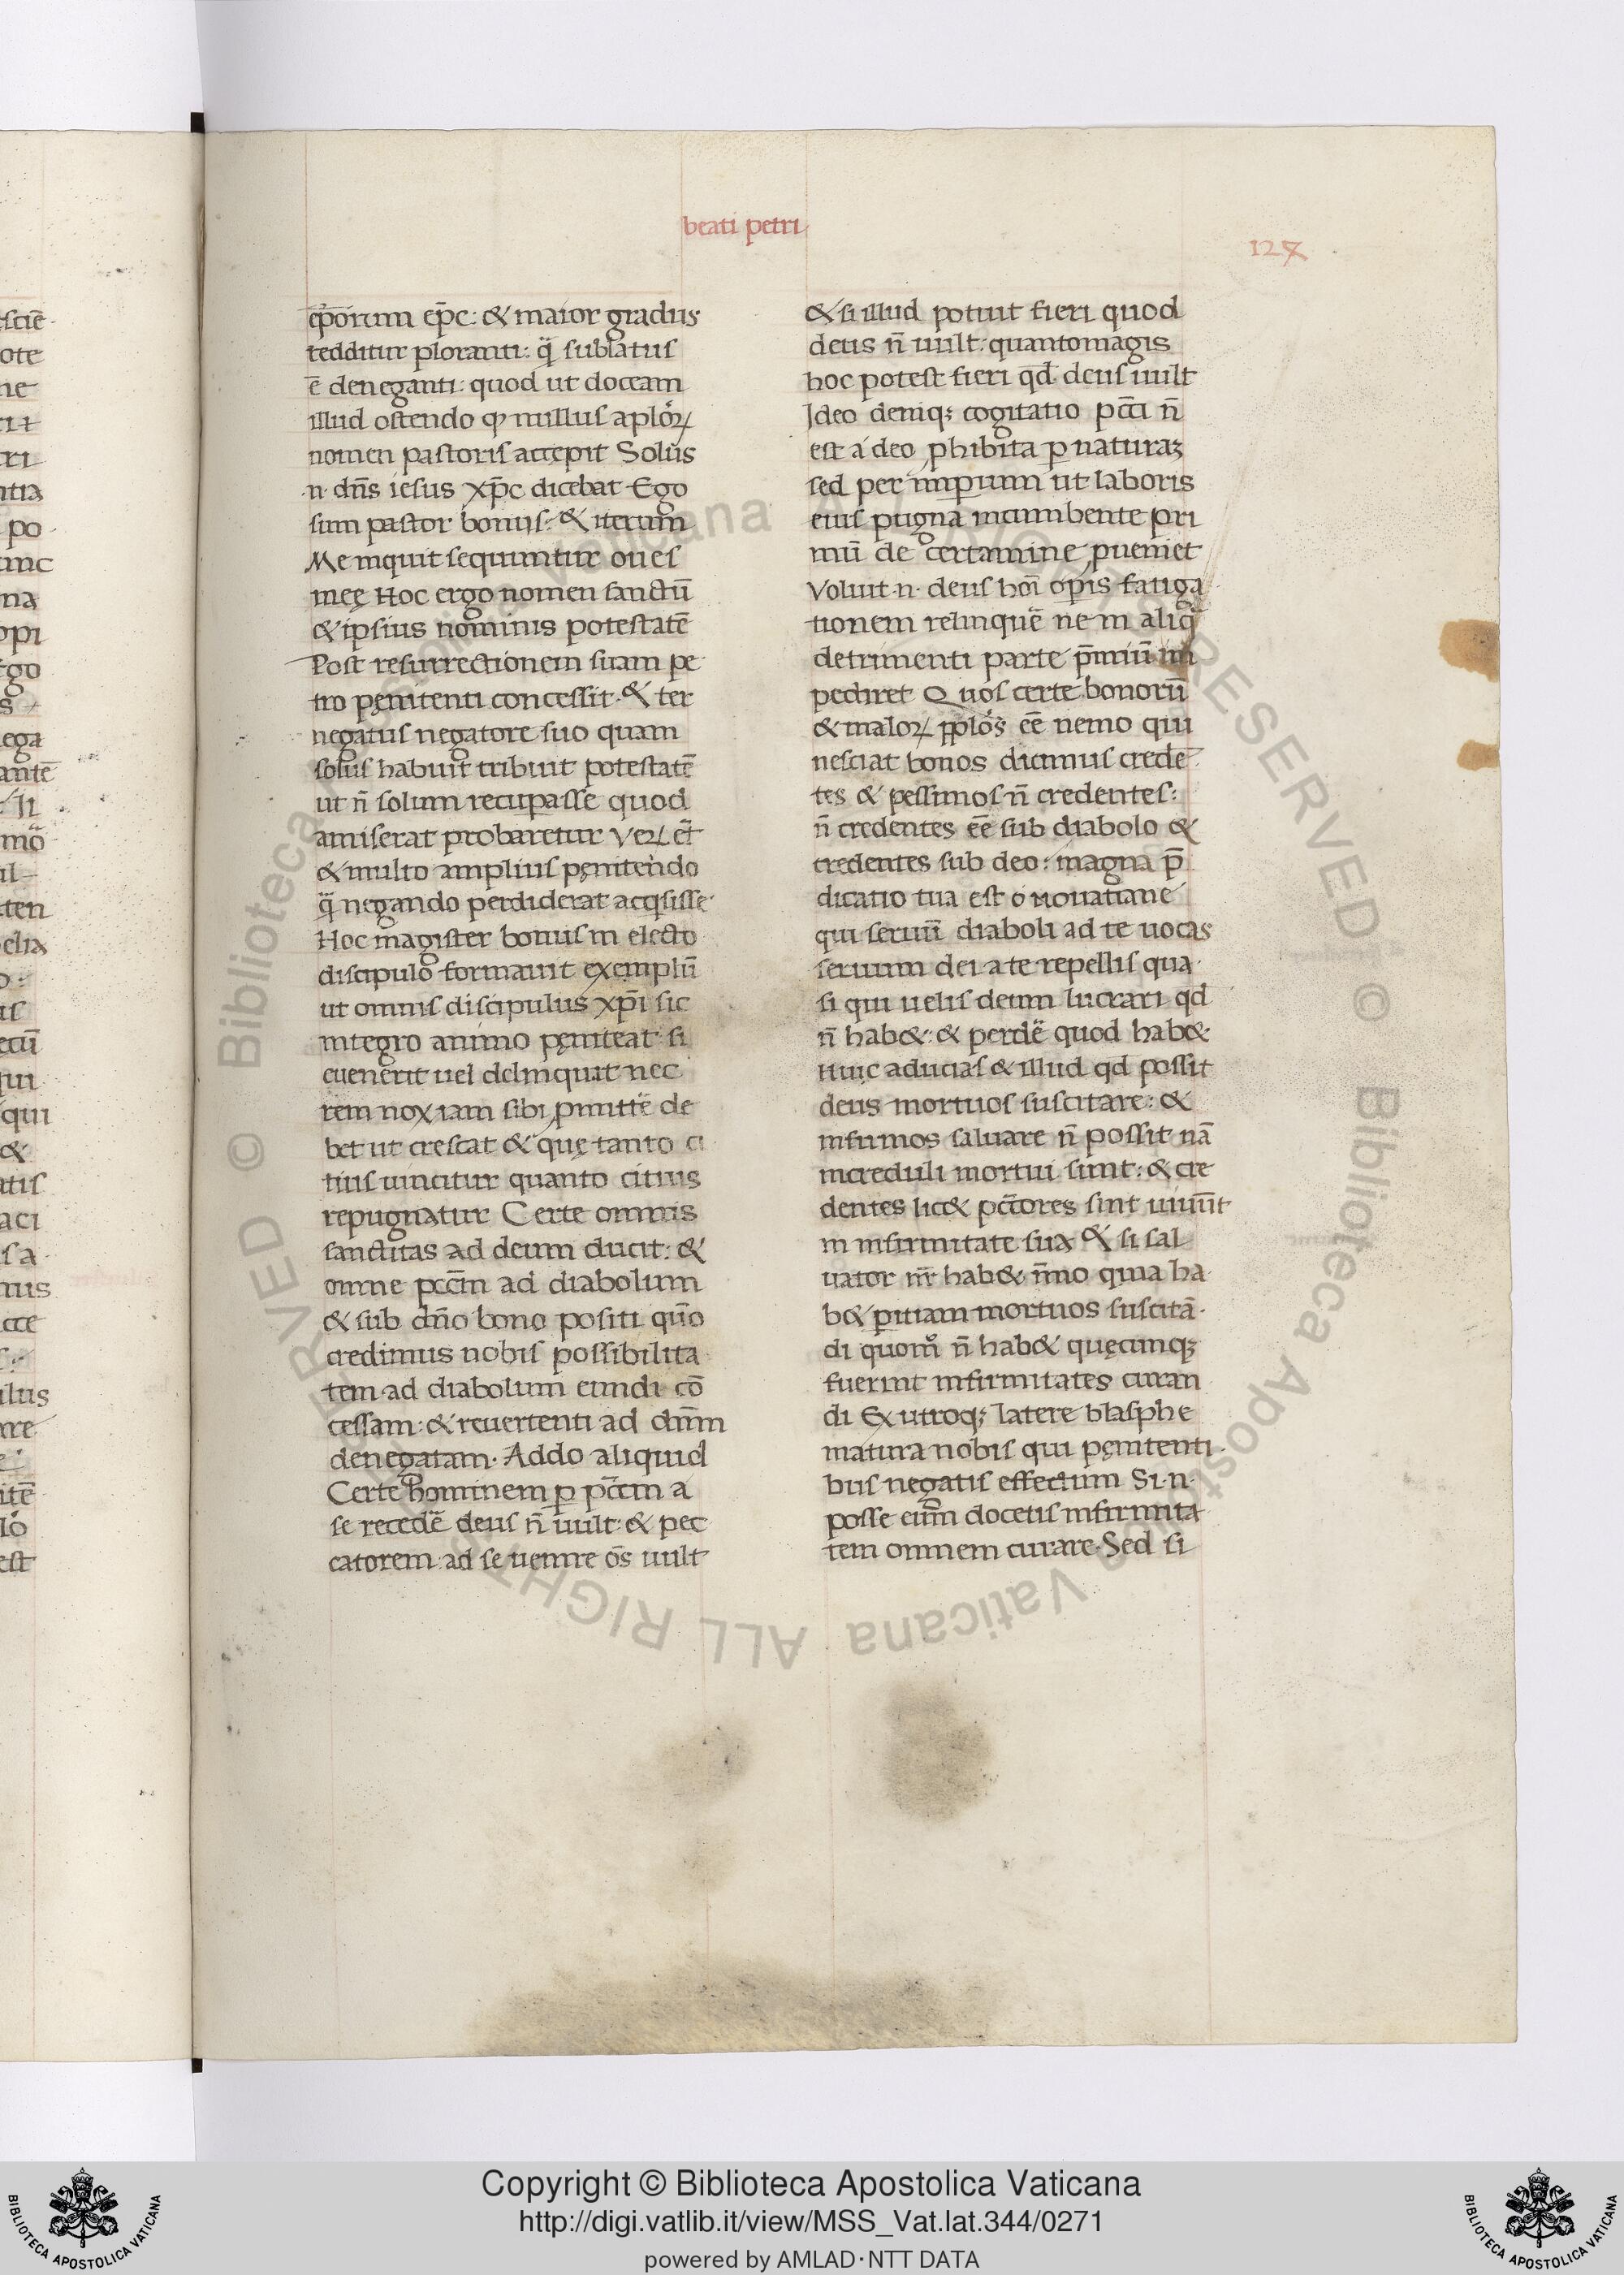 beati petri
127
ep̄orum ep̄c: & maior gradus
redditur ploranti: q̄ sublatus
ē deneganti: quod ut doceam
illud ostendo ꝙ nullus aploꝝ
nomen pastoris accepit Solus
.n. dn̄s iesus xp̄c dicebat Ego
sum pastor bonus: & iterum
Me inquit sequuntur oues
meę Hoc ergo nomen sanctū
& ipsius nominis potestatē
Post resurrectionem suam pe
tro pęnitenti concessit. & ter
negatus negatore suo quam
solus habuit tribuit potestatē
ut n̄ solum recuꝑasse quod
amiserat probaretur Veꝝ et̄
& multo amplius pęnitendo
q̄ negando perdiderat acqsisse
Hoc magister bonus in electo
discipulo formauit exemplū
ut omnis discipulus xp̄i sic
integro animo pęniteat si
euenerit uel delinquat nec
rem noxiam sibi ꝓmittē de
bet ut crescat & quę tanto ci
tius uincitur quanto citius
repugnatur Certe omnis
sanctitas ad deum ducit: &
omne pcc̄m ad diabolum
& sub dn̄o bono positi quō
credimus nobis possibilita
tem ad diabolum eundi cō
cessam: & reuertenti ad dn̄m
denegatam. Addo aliquid
Certe hominem ꝑ pcc̄m a
se recedē deus n̄ uult & pec
catorem ad se uenire os̄ uult
& si illud potuit fieri quod
deus n̄ uult: quantomagis
hoc potest fieri qd̄ deus uult
Ideo deniqꝫ cogitatio pcc̄i n̄
est a deo ꝓhibita ꝑ naturaꝫ
sed per imꝑium ut laboris
eius pugna incumbente pri
mū de certamine ꝓueniet
Voluit .n. deus hoī oꝑis fatiga
tionem relinquē ne in aliq̄
detrimenti parte p̄miū im
pediret Quos certe bonorū
& maloꝝ pploꝝ eē nemo qui
nesciat bonos dicimus credē
tes & pessimos n̄ credentes:
n̄ credentes eē sub diabolo &
credentes sub deo: magna p̄
dicatio tua est o nouatiane
qui seruū diaboli ad te uocas
seruum dei a te repellis qua
si qui uelis deum lucrari qd
n̄ hab&: & perdē quod hab&
Huic aducias & illud qd possit
deus mortuos suscitare: &
infirmos saluare n̄ possit nā
increduli mortui sunt: & cre
dentes lic& pcc̄ores sint uiuūt
in infirmitate sua & si sal
uator nr̄ hab& īmo quia ha
b& ꝑitiam mortuos suscitā
di quom̊ n̄ hab& quęcunqꝫ
fuerint infirmitates curan
di Ex utroqꝫ latere blasphe
matura nobis qui pęnitenti
bus negatis effectum Si .n.
posse eum̄ docetis infirmita
tem omnem curare. Sed si
Copyright © Biblioteca Apostolica Vaticana
http://digi.vatlib.it/view/MSS_Vat.lat.344/0271
powered by AMLAD·NTT DATA